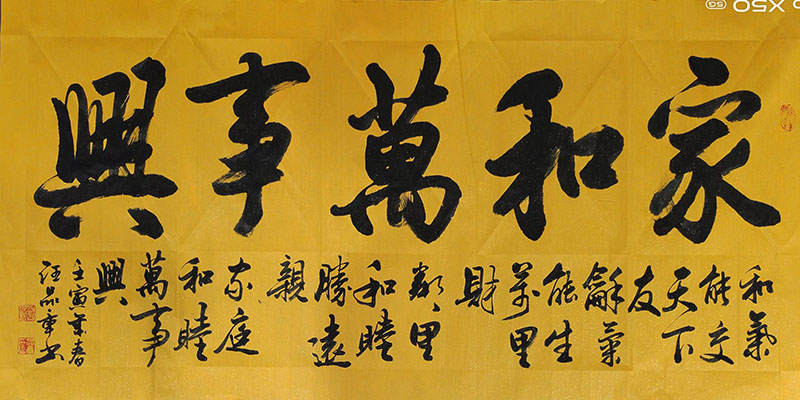 家和萬事興
和氣
能交
天下
友
龢氣
能生
萬里
財
鄰里
和睦
勝遠
親
家庭
和睦
萬事
興
壬寅春
汪品书
X50 5G